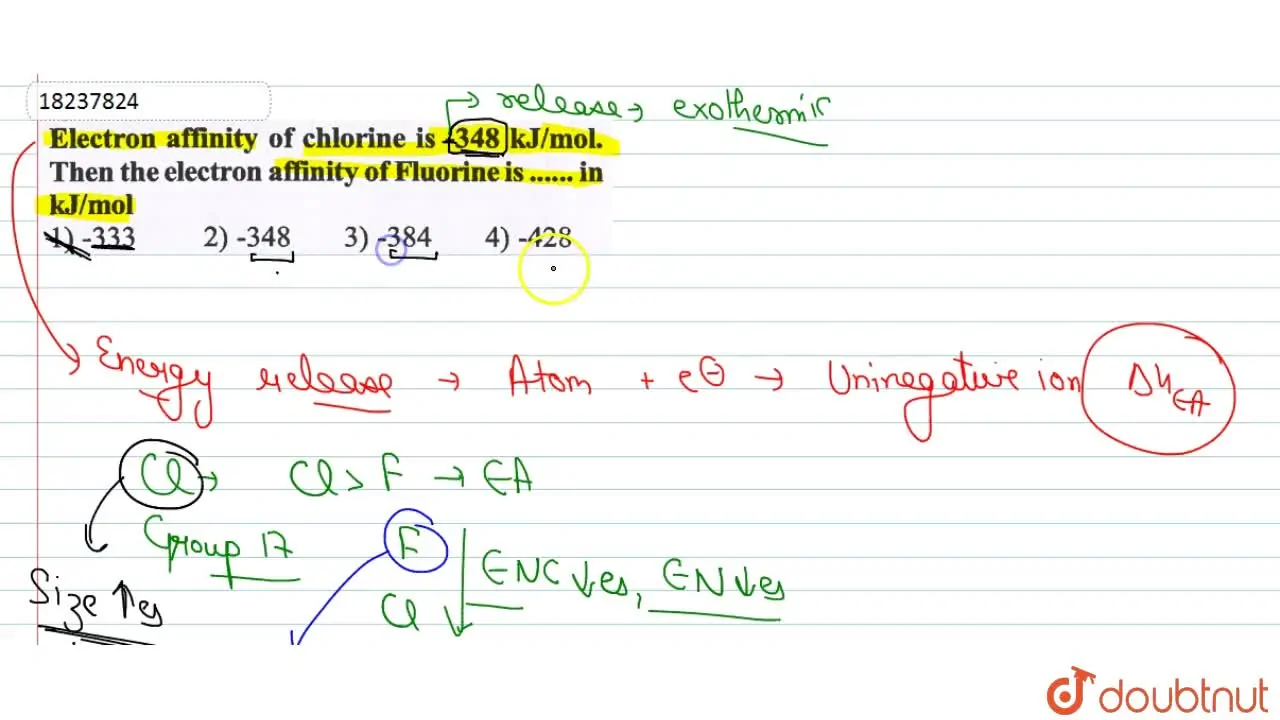 18237824
→ release → exothermic
Electron affinity of chlorine is -348 kJ/mol.
Then the electron affinity of Fluorine is ...... in
kJ/mol
1) -333 2) -348 3) -384 4) -428
→ Energy release → Atom + e⊖ → Uninegative ion ΔH EA
Cl → Cl > F → EA
Group 17
F
ENC ↓es, EN ↓es
Size ↑es
Cl
doubtnut